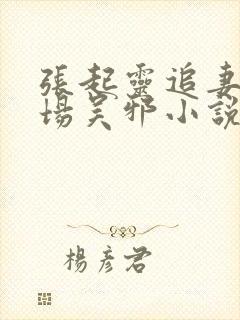 張起靈追妻
場吴邪小說
楊彥君